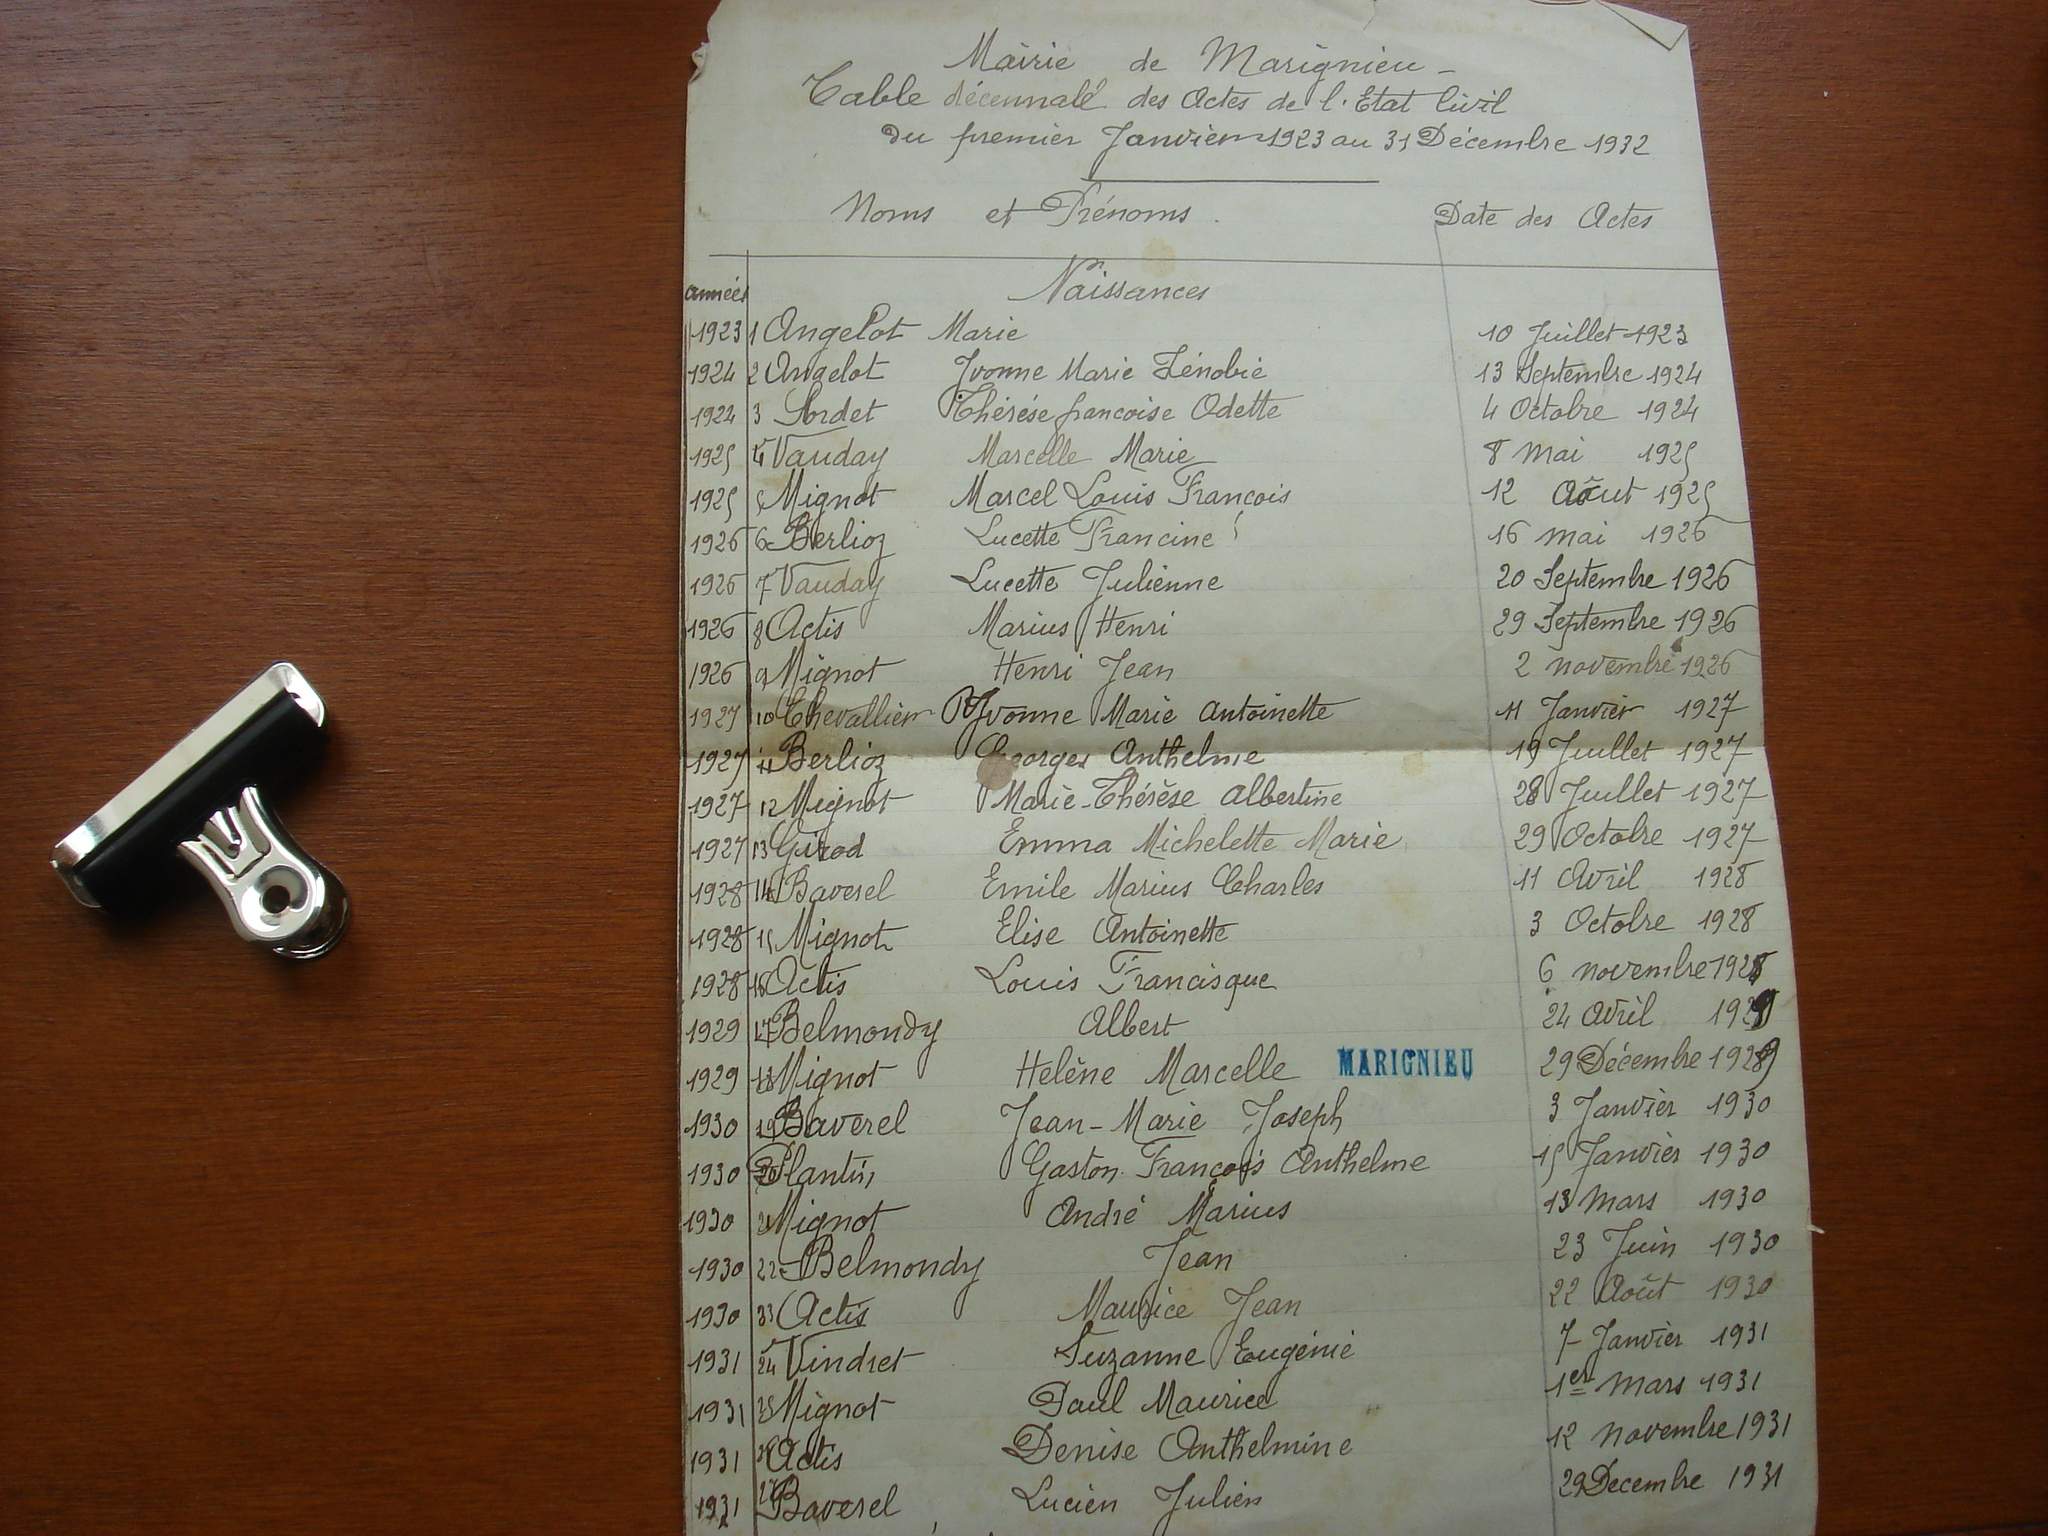 Mairie de Marignieu -
Table décennale des Actes de l'Etat Civil
du premier Janvier 1923 au 31 Décembre 1932
Noms et Prénoms. Date des Actes
années Naissances
1923 1 Angelot Marie 10 Juillet 1923
1924 2 Angelot Yvonne Marie Zénobie 13 Septembre 1924
1924 3 Sordet Thérése francoise Odette 4 Octobre 1924
1925 4 Vauday Marcelle Marie 8 Mai 1925
1925 5 Mignot Marcel Louis Francois 12 Aôut 1925
1926 6 Berlioz Lucette Francine 16 mai 1926
1926 7 Vauday Lucette Juliènne 20 Septembre 1926
1926 8 Actis Marius Henri 29 Septembre 1926
1926 9 Mignot Henri Jean 2 novembre 1926
1927 10 Chevallier Yvonne Marie Antoinette 11 Janvier 1927
1927 11 Berlioz Georges Anthelme 19 Juillet 1927
1927 12 Mignot Marie-Thérèse Albertine 28 Juillet 1927
1927 13 Girod Emma Michelette Marie 29 Octobre 1927
1928 14 Baverel Emile Marius Charles 11 Avril 1928
1928 15 Mignot Elise Antoinette 3 Octobre 1928
1928 16 Actis Louis Francisque 6 novembre 1928
1929 17 Belmondy Albert 24 Avril 1929
1929 18 Mignot Helène Marcelle MARIGNIEU 29 Décembre 1929
1930 19 Baverel Jean-Marie Joseph 3 Janvier 1930
1930 20 Plantin Gaston François Anthelme 15 Janvier 1930
1930 21 Mignot André Marius 13 Mars 1930
1930 22 Belmondy Jean 23 Juin 1930
1930 23 Actis Maurice Jean 22 Août 1930
1931 24 Vindret Suzanne Eugénie 7 Janvier 1931
1931 25 Mignot Paul Maurice 1er Mars 1931
1931 26 Actis Denise Anthelmine 12 Novembre 1931
1931 27 Baverel Lucien Julien 29 Decembre 1931